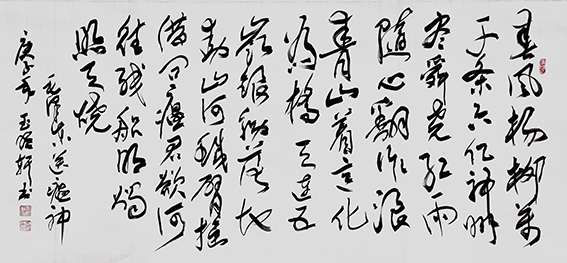 春風楊柳萬
千条六亿神州
盡舜堯红雨
随心翻作浪
青山着意化
为橋天连五
嶺银锄落地
动山河铁臂摇
借问瘟君欲何
往纸船明燭
照天燒
毛泽东送瘟神
庚子年 书